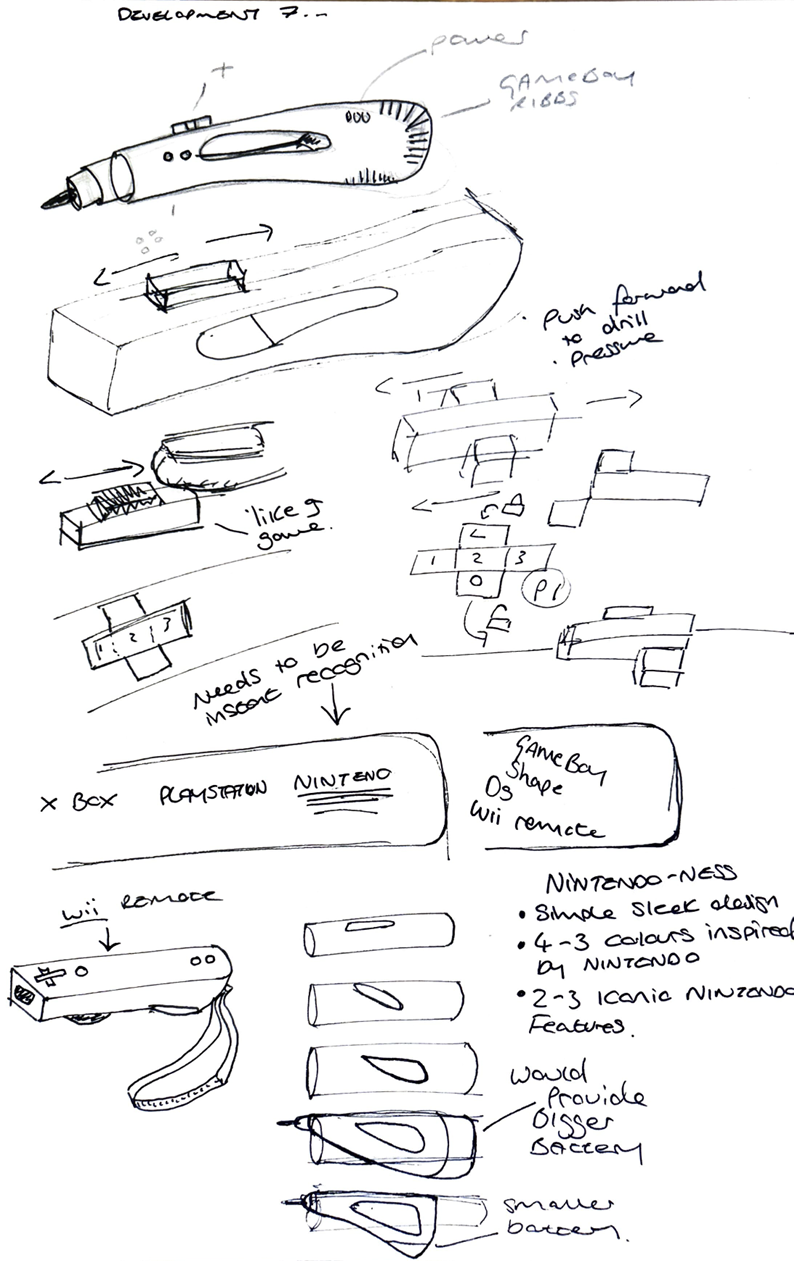 DEVELOPMENT 7...
power
+
GAMEBOY
RIBBS
· Push forward
to drill
· Pressure
'like g
game.
L
1 2 3
O
P1
1 2 3
Needs to be
instant recognition
X BOX PLAYSTATION NINTENO
GAMEBOY
Shape
DS
Wii remote
Wii REMOTE
NINTENDO-NESS
• Simple sleek design
• 4-3 colours inspired
by NINTENDO
• 2-3 Iconic NINTENDO
Features.
would
Provide
Bigger
Battery
smaller
battery.